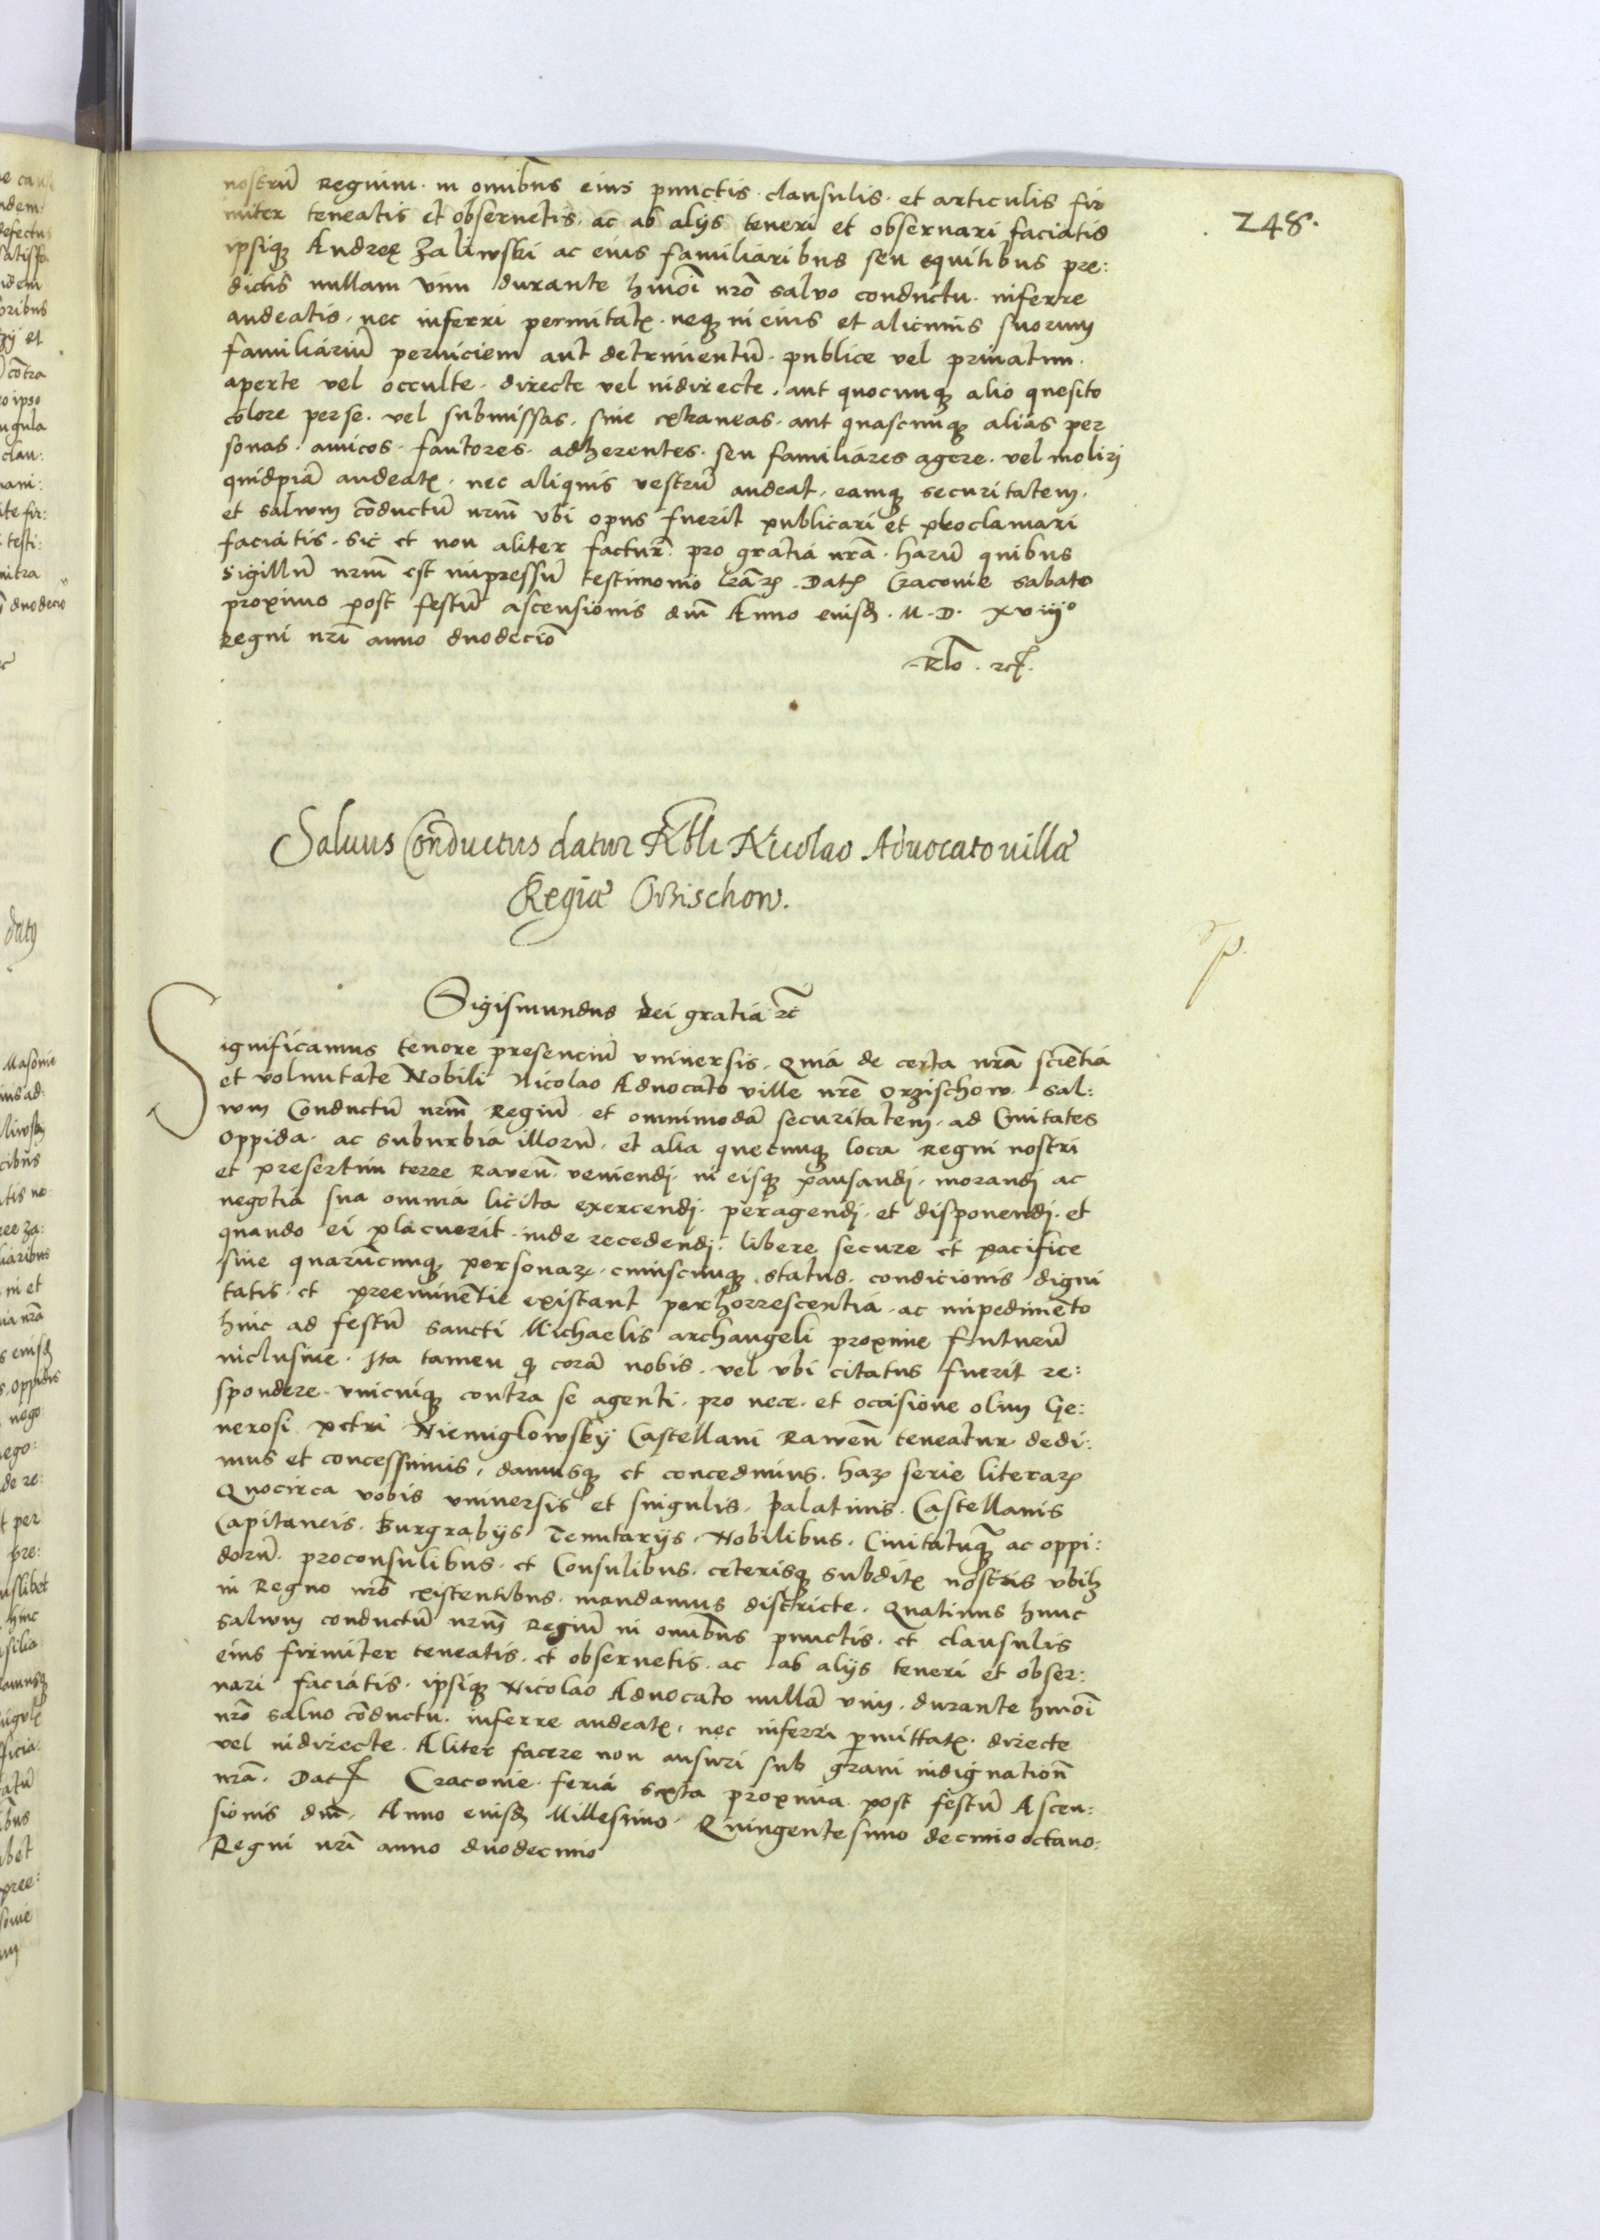 nostrū Regium. in omībus eius punctis. clausulis. et articulis fir
miter teneatis et observetis. ac ab alijs teneri et observari faciatis
ipsiqꝫ Andreę Zaliwski ac eius familiaribus seu equitibus pre:
dictis nullam vim durante hmōi nrō salvo conductu. inferre
audeatis. nec inferri permitatꝭ. neqꝫ in eius et alicuius suorum
familiariū perniciem aut detrimentū. publice vel privatim.
aperte vel occulte. directe vel indirecte. aut quocunqꝫ alio quesito
colore per se. vel submissas. sive extraneas. aut quascunqꝫ alias per
sonas. amicos. fautores. adherentes. seu familiares agere. vel moliri
quidpiā audeatꝭ. nec aliquis vestrū audeat. eamqꝫ securitatem.
et salvum cōductū nrm̄ ubi opus fuerit publicari et proclamari
faciatis. sic et non aliter facturī pro gratia nrā. harū quibus
Sigillū nrm̄ est impressū testimonio lrāꝝ. Datꝭ Cracovie Sabato
proximo post festū ascensionis dnī Anno eiusdꝫ. M. D. xviijº
Regni nrī anno duodecīo
Rlō. rctꝭ.
248.
Salvus Conductus datur Nobli Nicolao Advocato villæ
Regiæ Orzischow.
Sigismundus Dei gratia rc̄
Significamus tenore presenciū universis. Quia de certa nrā scientia
et voluntate Nobili Nicolao Advocato ville nrē Orzischow. Sal:
vum Conductū nrm̄ Regiū. et omnimodā securitatem. ad Civitates
Oppida. ac suburbia illorū. et alia quecunqꝫ loca Regni nostri
et presertim terre Ravēn. veniendj. in eisqꝫ pausandj. morandj ac
negotia sua omnia licita exercendj. peragendj. et disponendj. et
quando ei placuerit. inde recedendj. libere secure et pacifice
sine quarūcunqꝫ personaꝝ. cuiuscunqꝫ status. condicionis digni
tatis. et preeminētie existant perhorrescentia. ac impedimēto
hinc ad festū Sancti Michaelis archangeli proxime futurū
inclusive. Ita tamen qꝫ corā nobis. vel ubi citatus fuerit re:
spondere. unicuiqꝫ contra se agenti. pro nece. et occisione olim Ge:
nerosi petri Niemiglowsky Castellani Rawēn teneatur dedi:
mus et concessimus, damusqꝫ et concedimus. haꝝ serie literaꝝ
Quocirca vobis universis et singulis. Palatinis. Castellanis
Capitaneis. Burgrabijs Tenutarijs. Nobilibus. Civitatūqꝫ ac oppi:
dorū. proconsulibus. et Consulibus. ceterisqꝫ subditꝭ nostris ubilꝫ
in Regno nrō existentibus. mandamus districte. Quatinus hunc
salvum conductū nrm̄ Regiū in omībus punctis. et clausulis
eius firmiter teneatis. et observetis. ac ab alijs teneri et obser:
vari faciatis. ipsiqꝫ Nicolao Advocato nullā vim. durante hmōi
nrō salvo cōductu. inferre audeatꝭ. nec inferri ꝑmittatꝭ. directe
vel indirecte. Aliter facere non ausuri sub gravi indignationē
nrā. Datꝭ Cracovie. feria sexta proxima post festū Ascen:
sionis dnī. Anno eiusdꝫ Millesimo. Quingentesimo decimooctavo.
Regni nrī anno duodecimo